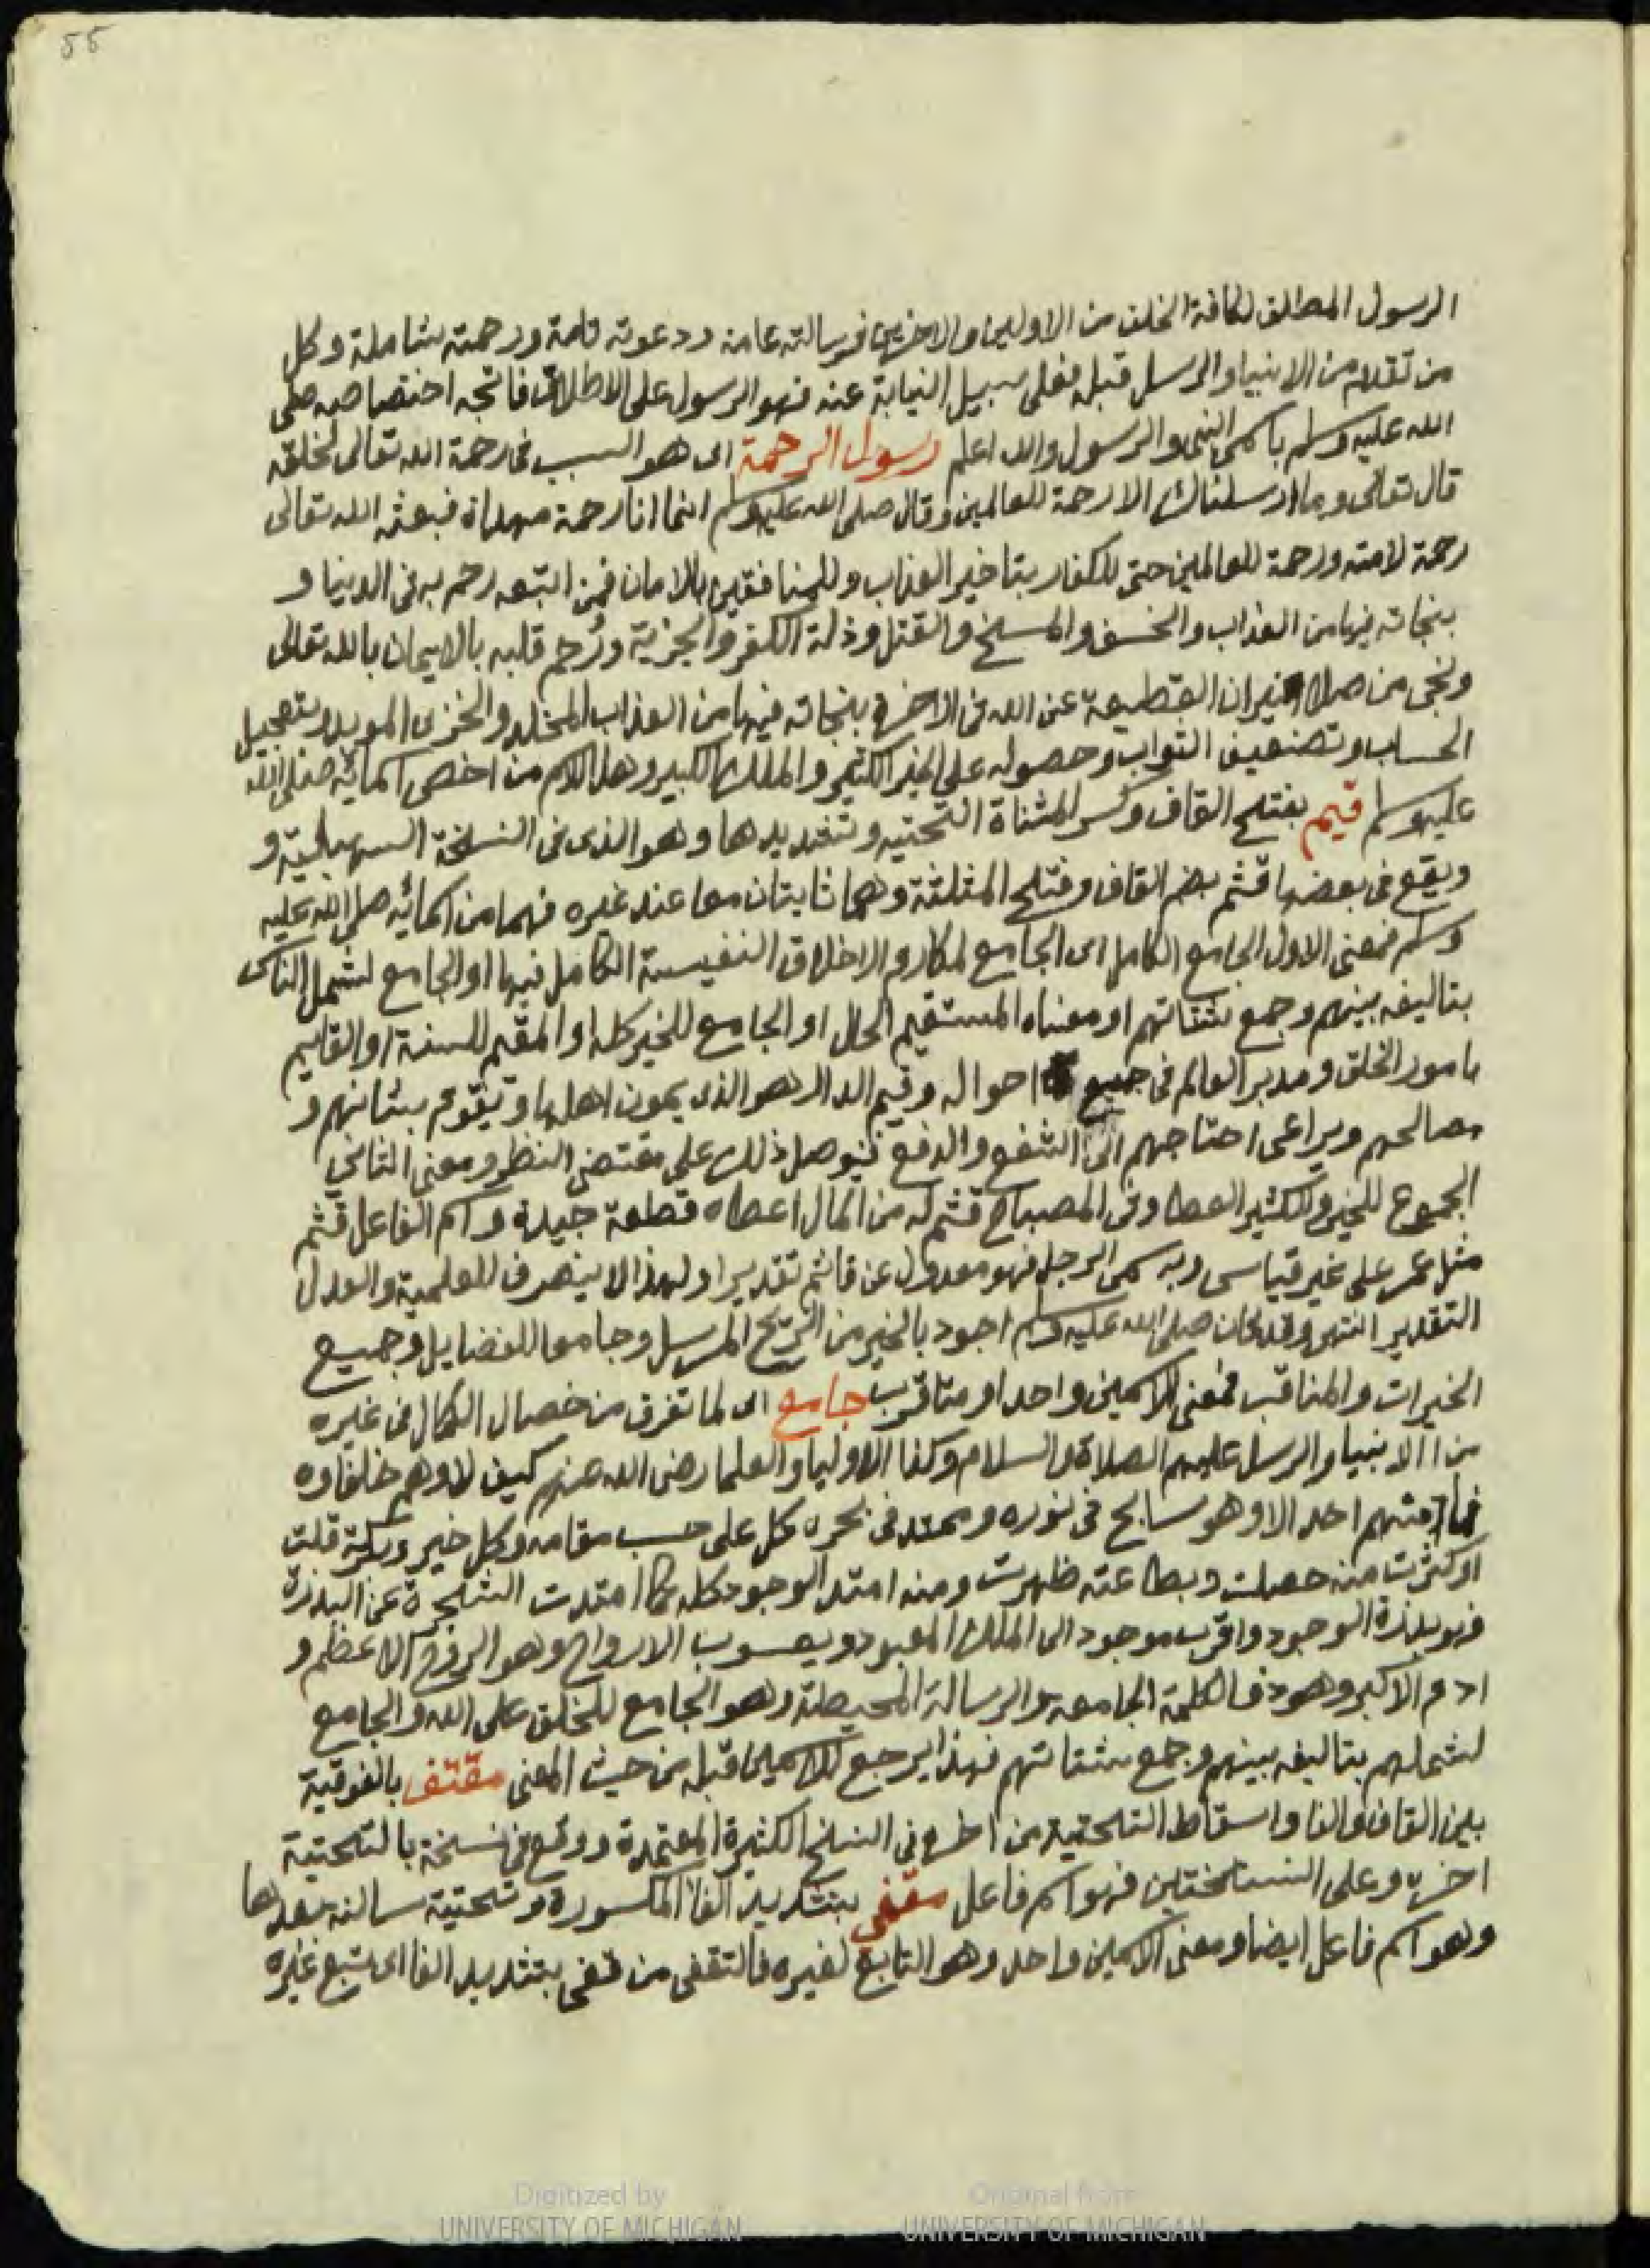 55
الرسول المطلق لكافة الخلق من الاولين والاخرين فرسالته عامة ودعوته تامة ورحمته شاملة وكل
من تقدم من الانبيا والرسل قبله فعلى سبيل النيابة عنه فهو الرسول على الاطلاق فاتجه اختصاصه صلى
الله عليه وسلم باسمى النبي والرسول والله اعلم رسول الرحمة اى هو السبب فى رحمة الله تعالى لخلقه
قال تعالى وما ارسلناك الا رحمة للعالمين وقال صلى الله عليه وسلم انما انا رحمة مهداة فبعثه الله تعالى
رحمة لامته ورحمة للعالمين حتى للكفار بتاخير العذاب وللمنافقين بالامان فمن اتبعه رحم به فى الدينا و
بنجاته فيها من العذاب والخسف والمسخ والقتل وذلة الكفر والجزية ورُحم قلبه بالايمان بالله تعالى
ونجى من صلا نيران القطيعة عن الله فى الاخرة بنجاته فيها من العذاب المخلد والخزى الموبد وبتعجيل
الحساب وتضعيف الثواب وحصوله على الخير الكثير والملك الكبير وهذا الاسم من اخص اسمائه صلى الله
عليه وسلم قيم بفتح القاف وكسر المثناة التحتيه وتشديدها وهو الذى فى النسخة السهيلية و
ويقع فى بعضها قثم بضم القاف وفتح المثلثة وهما ثابتان معا عند غيره فهما من اسمائه صلى الله عليه
وسلم فمعنى الاول الجامع الكامل اى الجامع لمكارم الاخلاق النفيسة الكامل فيها او الجامع لشمل الناس
بتاليفه بينهم وجمع شتاتهم او معناه المستقيم الحال او الجامع للخير كله او المقيم للسنة او القايم
بامور الخلق ومدبر العالم فى جميع احواله وقيم الدار هو الذى يمون اهلها ويقوم بشانهم و
مصالحهم ويراعى احتاجهم الى الشفع والدفع فيوصل ذلك على مقتضى النظر ومعنى الثانى
الجموع للخير والكثير العطا وفى المصباح قثم له من المال اعطاه قطعة جيدة واسم الفاعل قثم
مثل عمر على غير قياسى وبه سمى الرجل فهو معدول عن قاثم تقديرا ولهذا لا ينصرف للعلمية والعدل
التقدير انتهى وقد كان صلى الله عليه وسلم اجود بالخير من الريح المرسل وجامعا للفضايل وجميع
الخيرات والمناقب فمعنى الاسمين واحد او متاقرب جامع اى لما تفرق من خصال الكمال فى غيره
من االانبيا والرسل عليهم الصلاة والسلام وكذا الاوليا والعلما رضى الله عنهم كيف لا وهم خلفاوه
فما منهم احد الا وهو سابح فى نوره وممتد فى بحره كل على حسب مقامه وكل خير وبركة قلت
او كثرت منه حصلت وبطاعته ظهرت ومنه امتد الوجود كله كما امتدت الشجرة عن البذرة
فهو بذرة الوجود واقرب موجود الى الملك المعبود ويعسوب الارواح وهو الروح الاعظم و
ادم الاكبر وهو ذو الكلمة الجامعه والرسالة المحيطة وهو الجامع للخلق على الله والجامع
لشملهم بتاليفه بينهم وجمع شتاتهم فهذا يرجع للاسمين قبله من حيث المعنى مقتف بالفوقية
بين القاف والفا واسقاط التحتية من اخره فى النسخ الكثيرة المعتمدة ووقع فى نسخة بالتحتية
اخره وعلى النسختين فهو اسم فاعل مقفى بتشديد الفا المكسورة وتحتية ساكنه بعدها
وهو اسم فاعل ايضا ومعنى الاسمين واحد وهو التابع لغيره فالتقفى من قفى بتشديد الفا اى تبع غيره
Digitized by UNIVERSITY OF MICHIGAN
Original from UNIVERSITY OF MICHIGAN